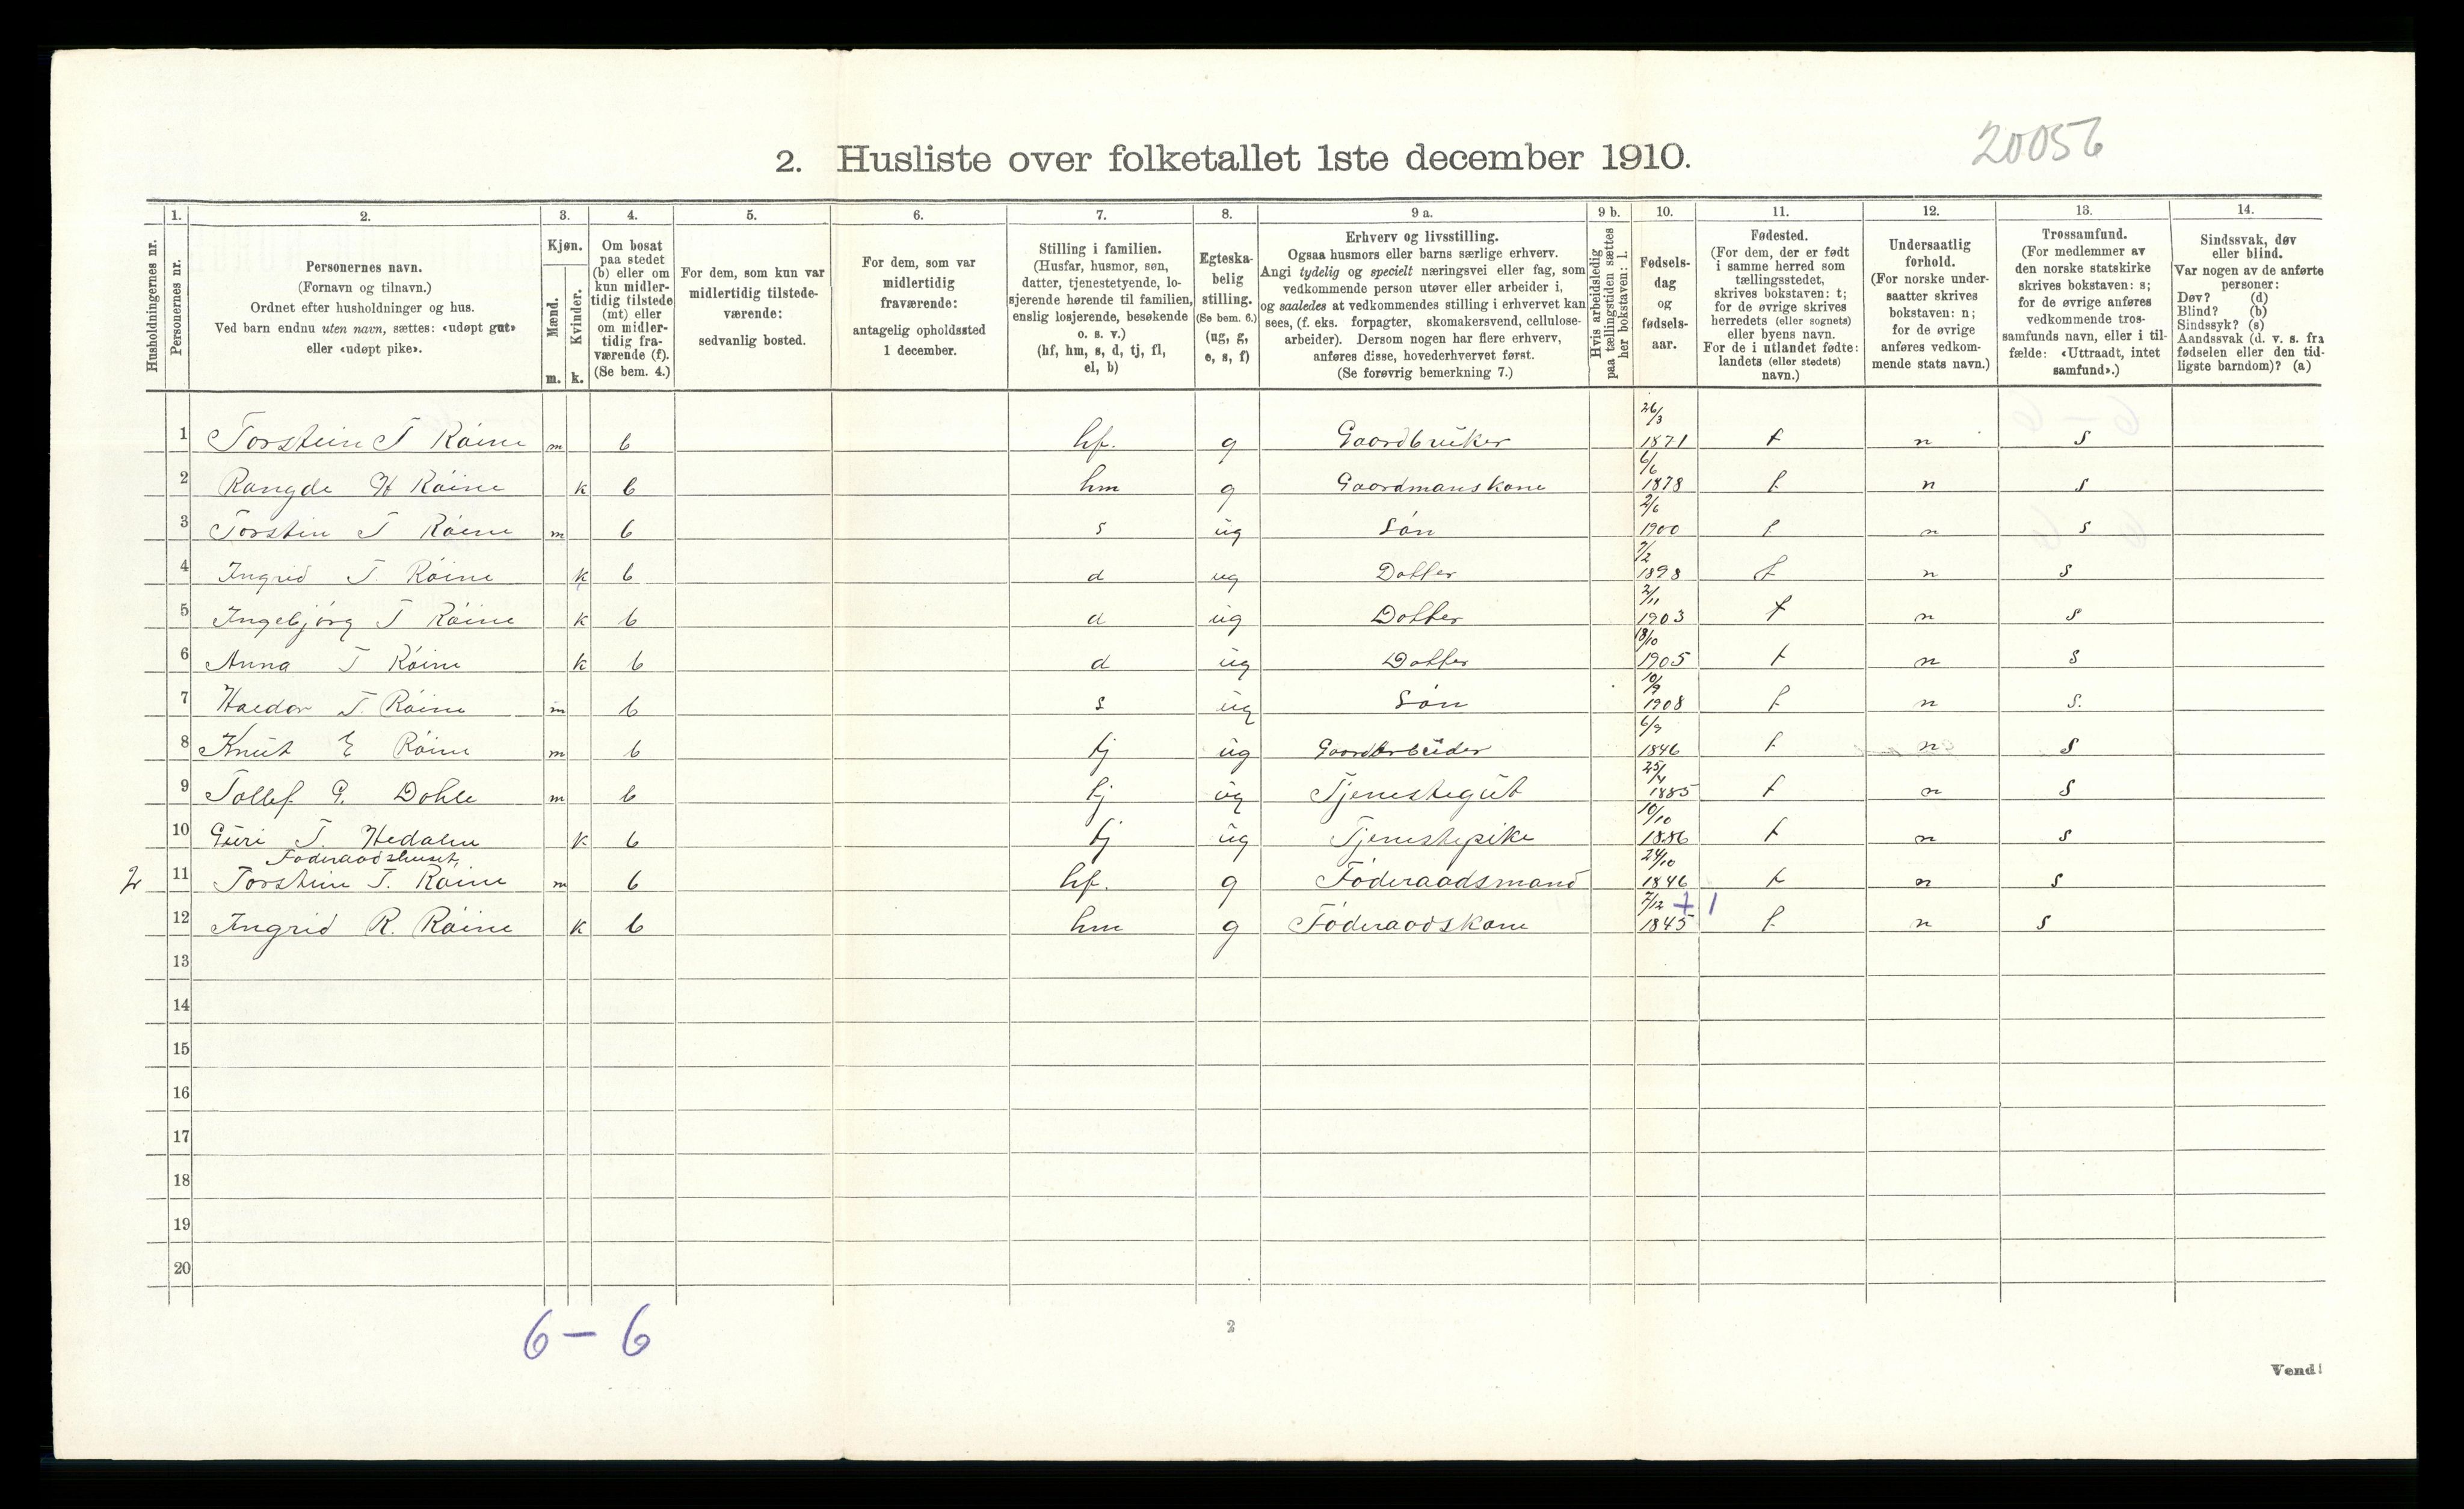 20056
2. Husliste over folketallet 1ste december 1910.
1. 2. 3. 4. 5. 6. 7. 8. 9 a. 9 b. 10. 11. 12. 13. 14.
Husholdningernes nr.
Personernes nr.
Personernes navn.
(Fornavn og tilnavn.)
Ordnet efter husholdninger og hus.
Ved barn endnu uten navn, sættes: «udøpt gut»
eller «udøpt pike».
Kjøn.
Mænd.
Kvinder.
m. k.
Om bosat
paa stedet
(b) eller om
kun midler-
tidig tilstede
(mt) eller
om midler-
tidig fra-
værende (f).
(Se bem. 4.)
For dem, som kun var
midlertidig tilstede-
værende:
sedvanlig bosted.
For dem, som var
midlertidig
fraværende:
antagelig opholdssted
1 december.
Stilling i familien.
(Husfar, husmor, søn,
datter, tjenestetyende, lo-
sjerende hørende til familien,
enslig losjerende, besøkende
o. s. v.)
(hf, hm, s, d, tj, fl,
el, b)
Egteska-
belig
stilling.
(Se bem. 6.)
(ug, g,
e, s, f)
Erhverv og livsstilling.
Ogsaa husmors eller barns særlige erhverv.
Angi tydelig og specielt næringsvei eller fag, som
vedkommende person utøver eller arbeider i,
og saaledes at vedkommendes stilling i erhvervet kan
sees, (f. eks. forpagter, skomakersvend, cellulose-
arbeider). Dersom nogen har flere erhverv,
anføres disse, hovederhvervet først.
(Se forøvrig bemerkning 7.)
Hvis arbeidsledig
paa tællingstiden sættes
her bokstaven: l.
Fødsels-
dag
og
fødsels-
aar.
Fødested.
(For dem, der er født
i samme herred som
tællingsstedet,
skrives bokstaven: t;
for de øvrige skrives
herredets (eller sognets)
eller byens navn.
For de i utlandet fødte:
landets (eller stedets)
navn.)
Undersaatlig
forhold.
(For norske under-
saatter skrives
bokstaven: n;
for de øvrige
anføres vedkom-
mende stats navn.)
Trossamfund.
(For medlemmer av
den norske statskirke
skrives bokstaven: s;
for de øvrige anføres
vedkommende tros-
samfunds navn, eller i til-
fælde: «Uttraadt, intet
samfund».)
Sindssvak, døv
eller blind.
Var nogen av de anførte
personer:
Døv? (d)
Blind? (b)
Sindssyk? (s)
Aandssvak (d. v. s. fra
fødselen eller den tid-
ligste barndom)? (a)
1 Torstein T Röine m b hf. g Gaardbruker 26/3 1871 t n s
2 Rangde H Röine k b hm g Gaardmanskone 6/6 1878 t n s
3 Torstin T Röine m b s ug Sön 2/6 1900 t n s
4 Ingrid T. Röine k b d ug Datter 7/2 1898 t n s
5 Ingebjörg T Röine k b d ug Datter 2/11 1903 t n s
6 Anna T Röine k b d ug Datter 18/10 1905 t n s
7 Haldor T. Röine m b s ug Sön 10/9 1908 t n s.
8 Knut E Röine m b tj ug Gaardarbeider 6/9 1846 t n s
9 Tollef G. Dohle m b tj ug Tjenestegut 25/4 1885 t n s
10 Guri T. Hedalen k b tj ug Tjenestepike 10/10 1886 t n s
Föderaadshuset,
2 11 Torstein T. Röine m b hf. g Föderaadsmand 24/10 1846 t n s
12 Ingrid R. Röine k b hm g Föderaadskone 7/12 1845 + 1 t n s
13
14
15
16
17
18
19
20
6 – 6
2
Vend!